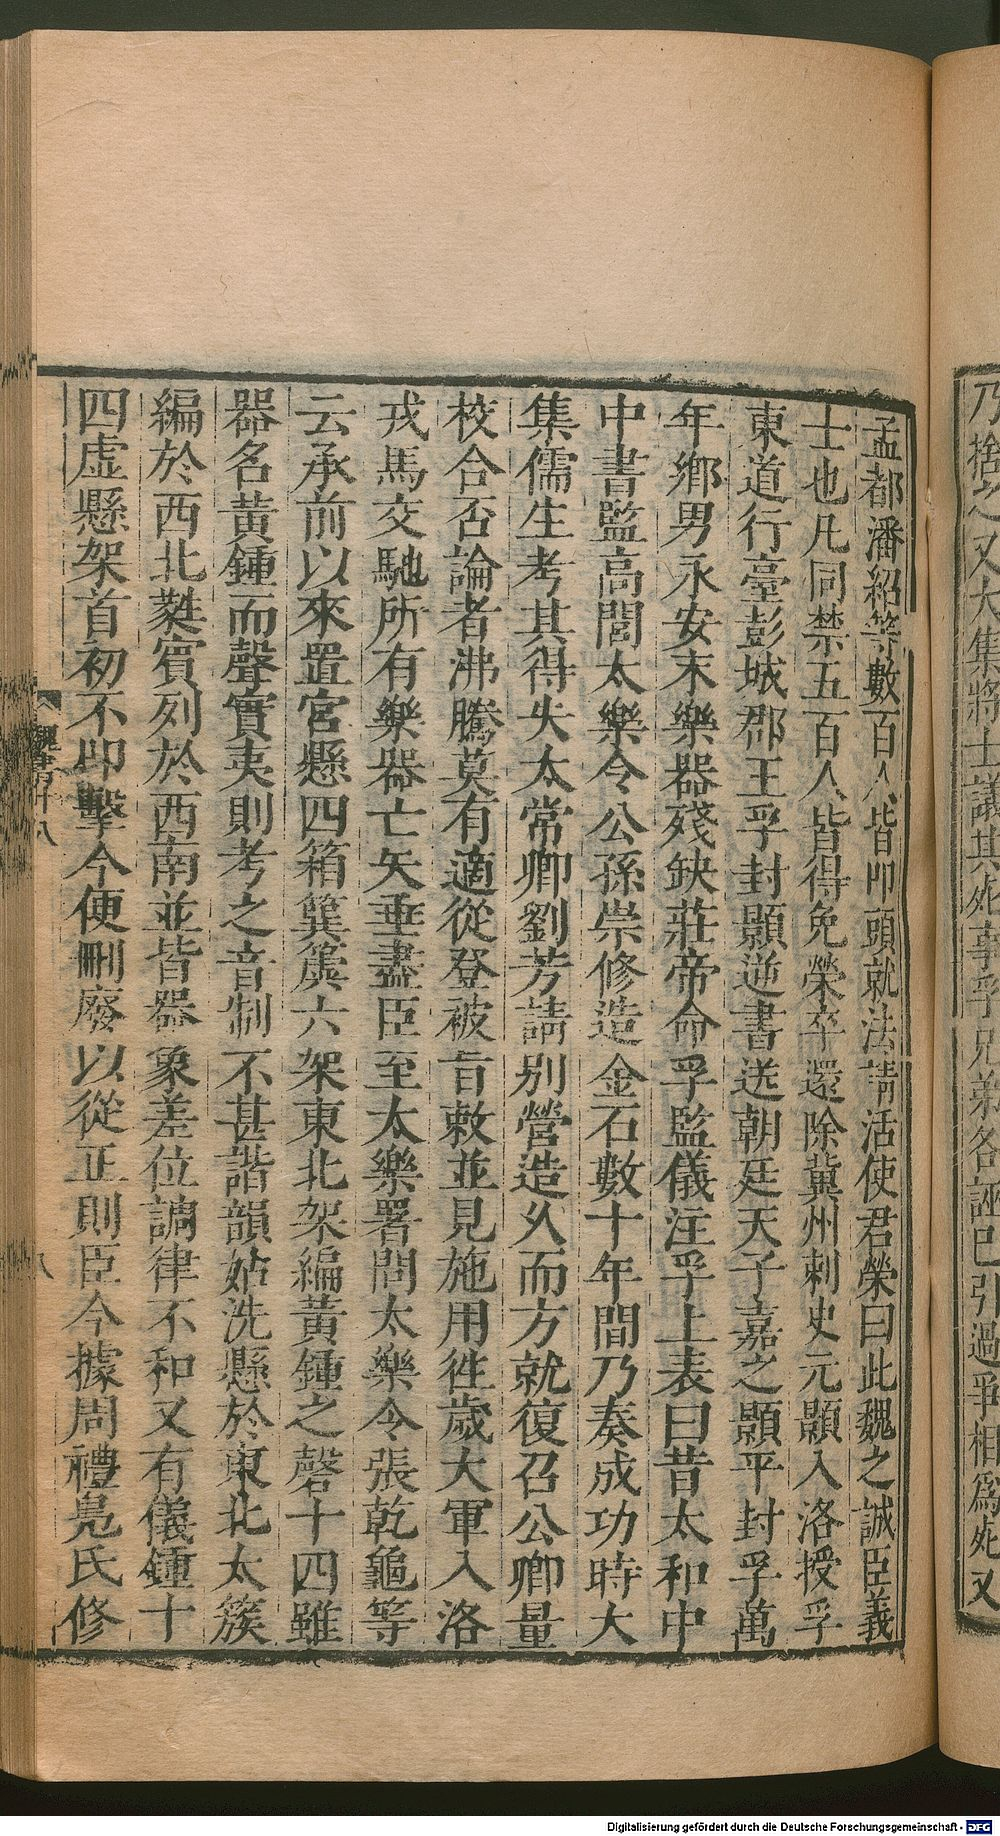 乃捨之又大集將士議其死事孚兄弟各誣已引過爭相爲死又
孟都潘紹等數百人皆叩頭就法請活使君榮曰此魏之誠臣義
士也凡同禁五百人皆得免榮卒還除冀州刺史元顥入洛授孚
東道行臺彭城郡王孚封顥逆書送朝廷天子嘉之顥平封孚萬
年鄉男永安末樂器殘缺莊帝命孚監儀注孚上表曰昔太和中
中書監高閭太樂令公孫崇修造金石數十年間乃奏成功時大
集儒生考其得失太常卿劉芳請別營造久而方就復召公卿量
校合否論者沸騰莫有適從登被旨敕並見施用徃歲大軍入洛
戎馬交馳所有樂器亡矢垂盡臣至太樂署問太樂令張乾龜等
云承前以來置宮懸四箱簨簴六架東北架編黃鍾之磬十四雖
器名黃鍾而聲實夷則考之音制不甚諧韻姑洗懸於東北太簇
編於西北蕤賓列於西南並皆器象差位調律不和又有儀鍾十
四虛懸架首初不叩擊今便刪廢以從正則臣今據周禮鳧氏修
魏書列十八
八
Digitalisierung gefördert durch die Deutsche Forschungsgemeinschaft - DFG